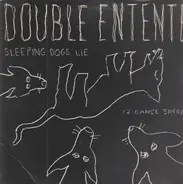 DOUBLE ENTENTE
SLEEPING DOGS LIE
12 DANCE SONGS